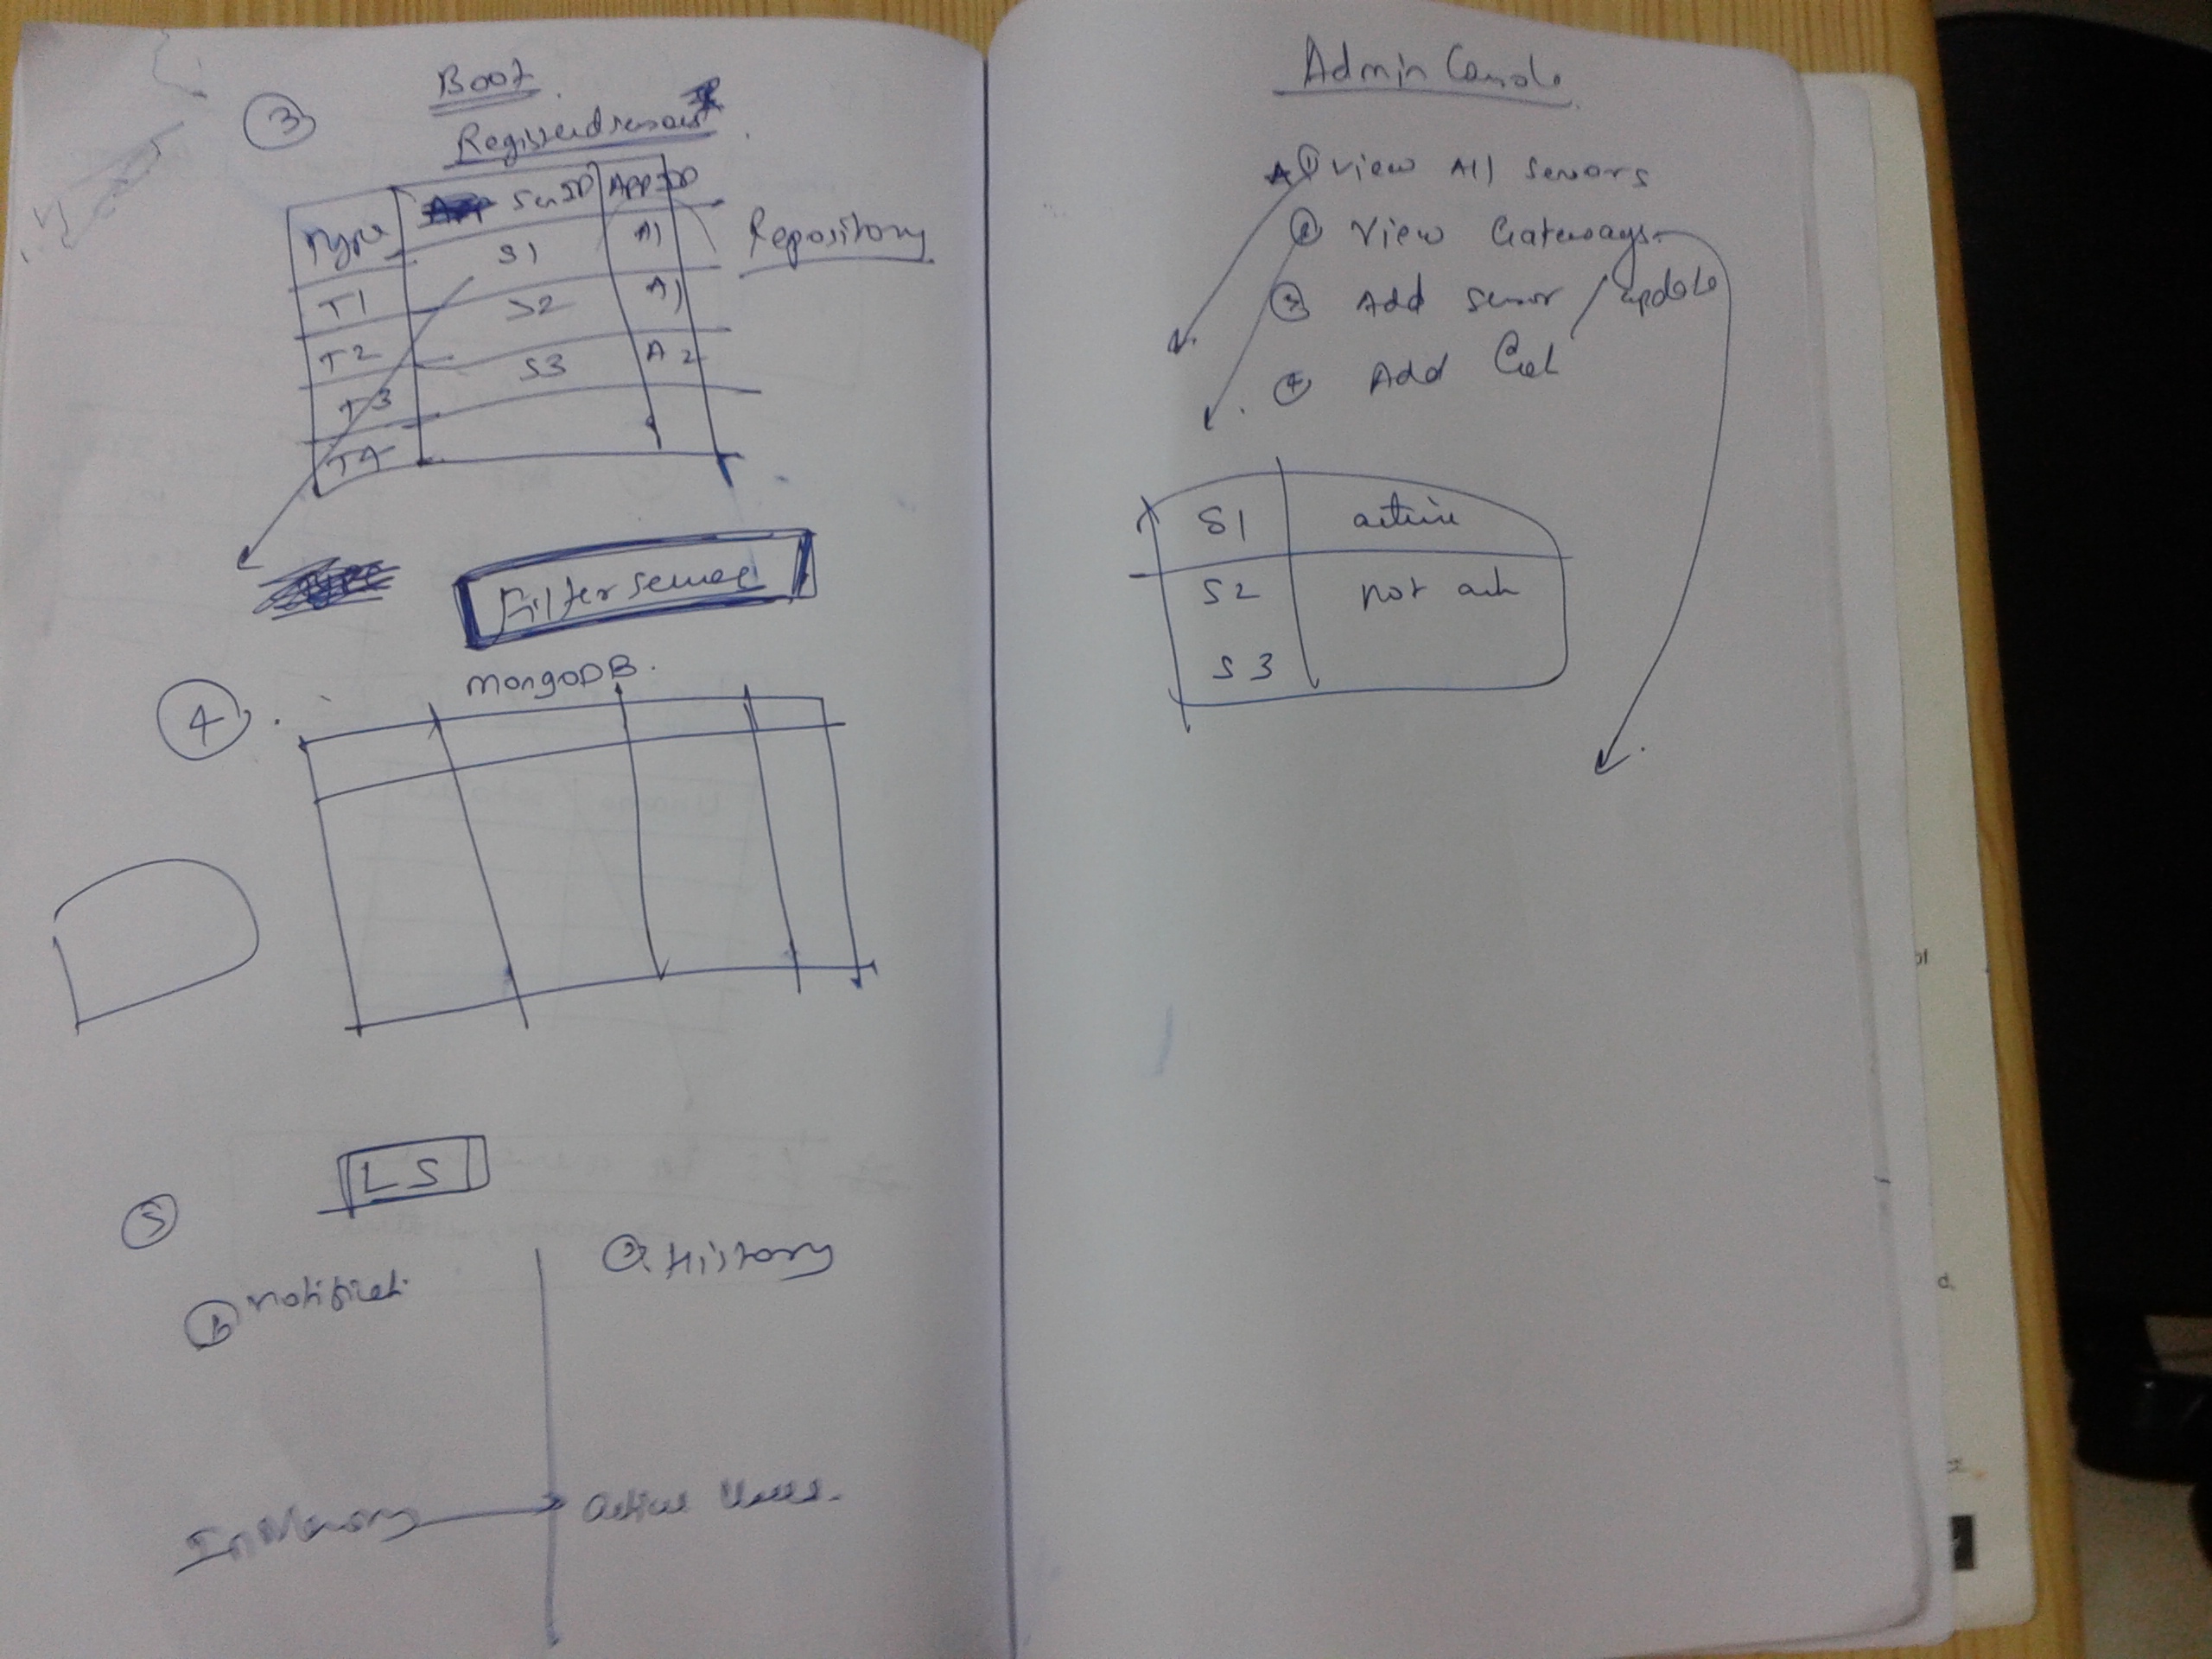 Boot
③
Registered sensors
Type SenID AppID
S1 A1
Repository
T1 S2 A1
T2 S3 A2
T3
T4
Filter server
MongoDB.
④
LS
⑤
① notificat
② History
InMemory active Users.
Admin Console
① View All sensors
② View Gateways
③ Add sensor / update
④ Add Gat
S1 active
S2 not act
S3